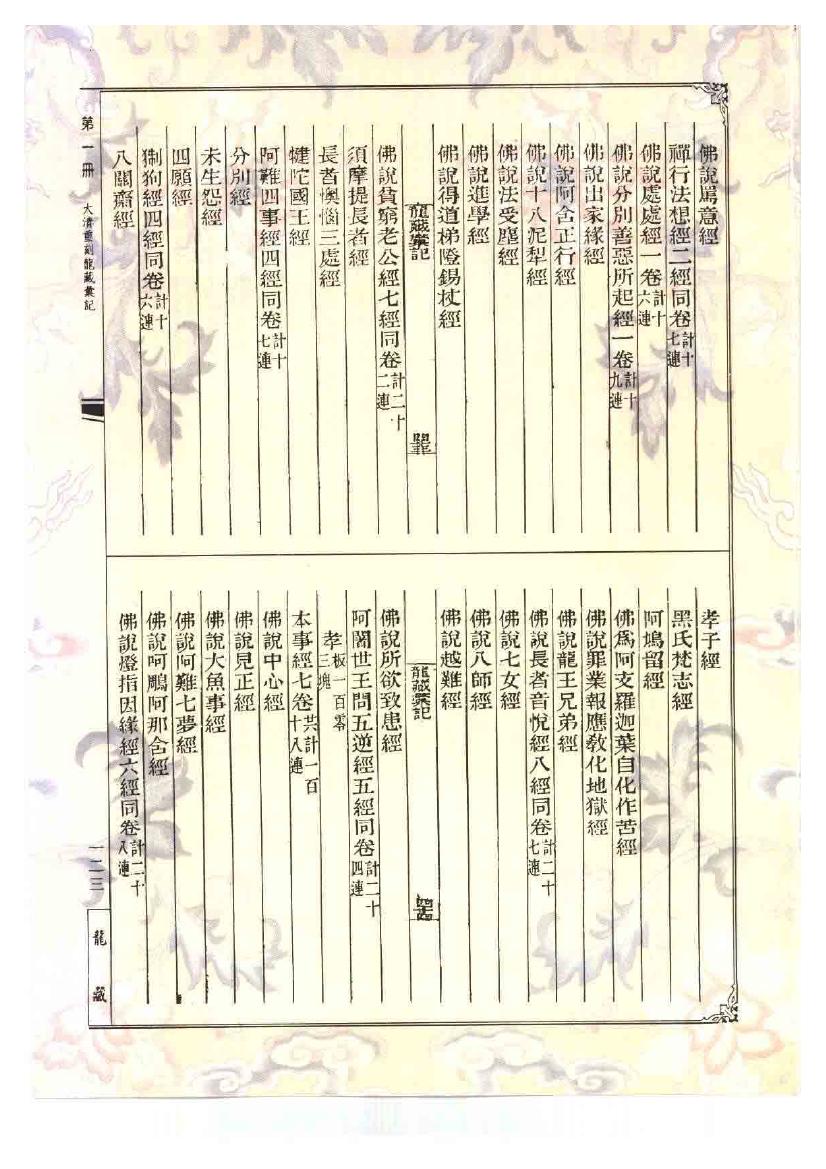 佛說罵意經
禪行法想經二經同卷計十七連
佛說處處經一卷計十六連
佛說分別善惡所起經一卷計十九連
佛說出家緣經
佛說阿含正行經
佛說十八泥犁經
佛說法受塵經
佛說進學經
佛說得道梯隥錫杖經
龍藏彙記
佛說貧窮老公經七經同卷計二十二連
須摩提長者經
長者懊惱三處經
犍陀國王經
阿難四事經四經同卷計十七連
分別經
未生怨經
四願經
猘狗經四經同卷計十六連
八關齋經
孝子經
黑氏梵志經
阿鳩留經
佛為阿支羅迦葉自化作苦經
佛說罪業報應教化地獄經
佛說龍王兄弟經
佛說長者音悅經八經同卷計二十七連
佛說七女經
佛說八師經
佛說越難經
龍藏彙記
佛說所欲致患經
阿闍世王問五逆經五經同卷計二十四連
孝板一百零三塊
本事經七卷共計一百十八連
佛說中心經
佛說見正經
佛說大魚事經
佛說阿難七夢經
佛說呵鵰阿那含經
佛說燈指因緣經六經同卷計二十八連
第一冊 大清重刻龍藏彙記
一二三
龍藏